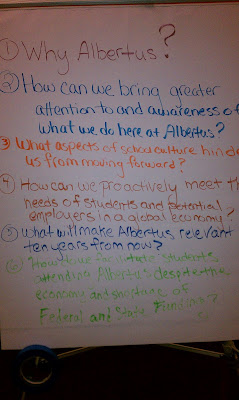 ① Why Albertus?
② How can we bring greater
attention to and awareness of
what we do here at Albertus?
③ What aspects of school culture hinder
us from moving forward?
④ How can we proactively meet the
needs of students and potential
employers in a global economy?
⑤ What will make Albertus relevant
ten years from now?
⑥ How do we facilitate students
attending Albertus despite the
economy and shortage of
Federal and State Funding?